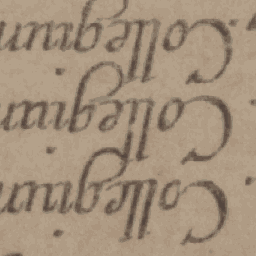 Collegium
Collegium
Collegium